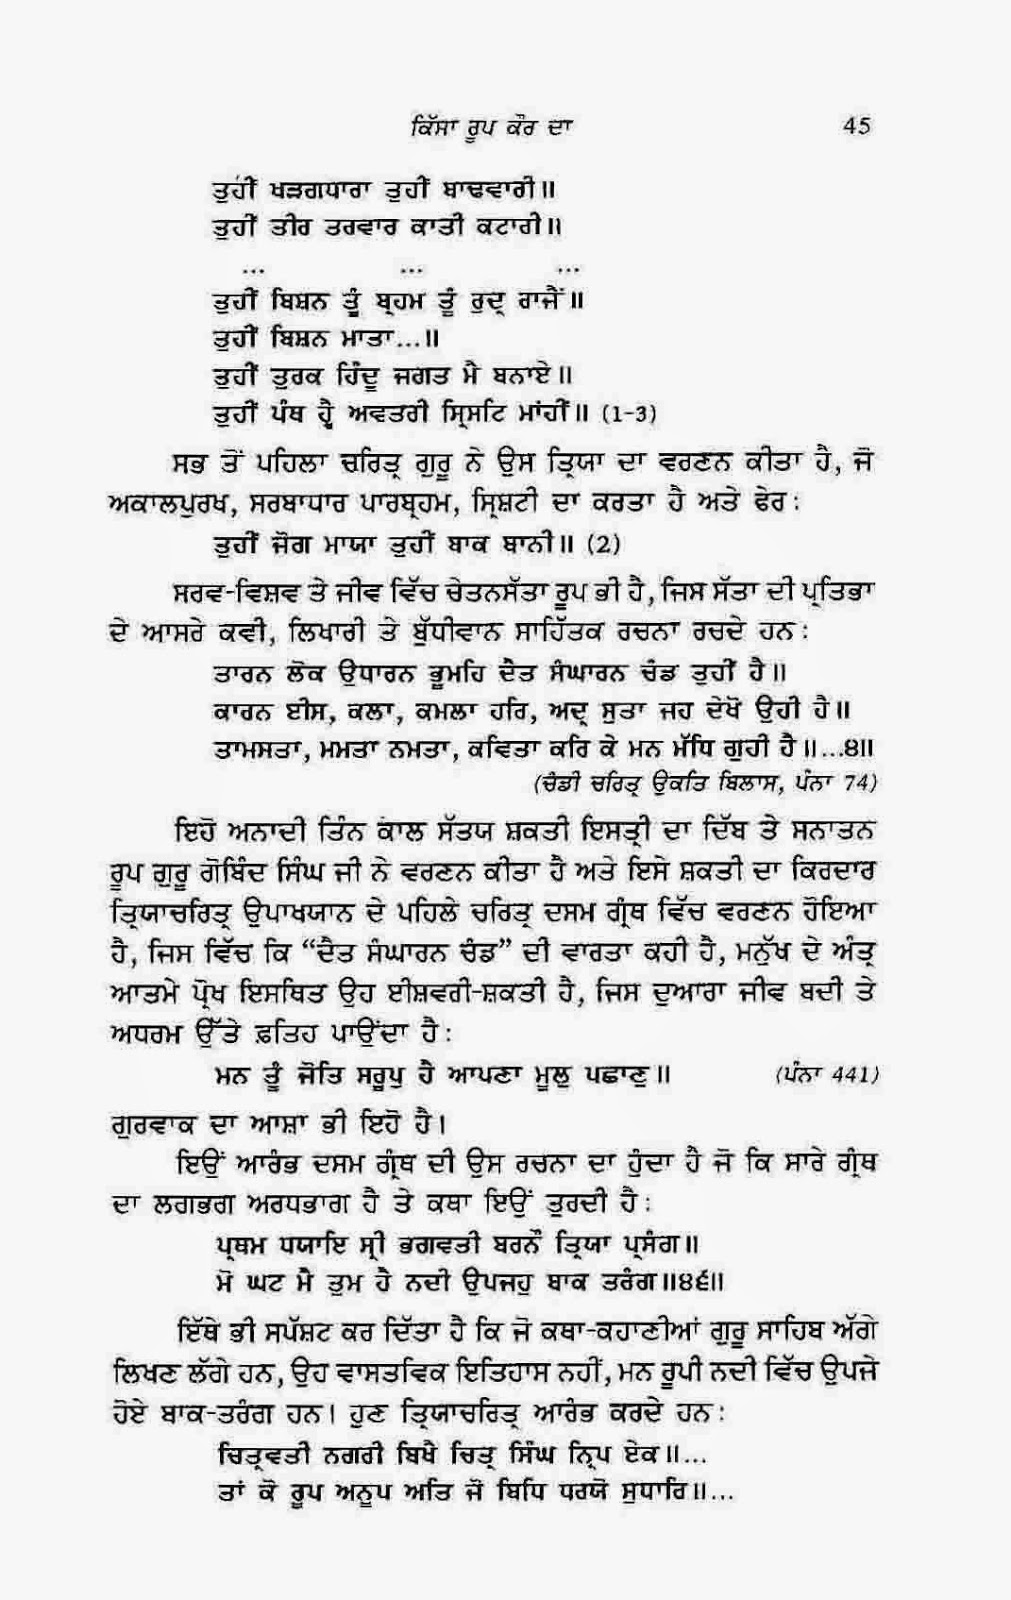 ਕਿੱਸਾ ਰੂਪ ਕੌਰ ਦਾ 45
ਤੁਹੀਂ ਖੜਗਧਾਰਾ ਤੁਹੀਂ ਬਾਢਵਾਰੀ॥
ਤੁਹੀਂ ਤੀਰ ਤਰਵਾਰ ਕਾਤੀ ਕਟਾਰੀ॥
... ... ...
ਤੁਹੀਂ ਬਿਸ਼ਨ ਤੂੰ ਬ੍ਰਹਮ ਤੂੰ ਰੁਦ੍ਰ ਰਾਜੈਂ॥
ਤੁਹੀਂ ਬਿਸ਼ਨ ਮਾਤਾ...॥
ਤੁਹੀਂ ਤੁਰਕ ਹਿੰਦੂ ਜਗਤ ਮੈ ਬਨਾਏ॥
ਤੁਹੀਂ ਪੰਥ ਹ੍ਵੈ ਅਵਤਰੀ ਸ੍ਰਿਸਟਿ ਮਾਂਹੀਂ॥ (1-3)
ਸਭ ਤੋਂ ਪਹਿਲਾ ਚਰਿਤ੍ਰ ਗੁਰੂ ਨੇ ਉਸ ਤ੍ਰਿਯਾ ਦਾ ਵਰਣਨ ਕੀਤਾ ਹੈ, ਜੋ
ਅਕਾਲਪੁਰਖ, ਸਰਬਾਧਾਰ ਪਾਰਬ੍ਰਹਮ, ਸ੍ਰਿਸ਼ਟੀ ਦਾ ਕਰਤਾ ਹੈ ਅਤੇ ਫੇਰ :
ਤੁਹੀਂ ਜੋਗ ਮਾਯਾ ਤੁਹੀਂ ਬਾਕ ਬਾਨੀ॥ (2)
ਸਰਵ-ਵਿਸ਼ਵ ਤੇ ਜੀਵ ਵਿੱਚ ਚੇਤਨਸੱਤਾ ਰੂਪ ਭੀ ਹੈ, ਜਿਸ ਸੱਤਾ ਦੀ ਪ੍ਰਤਿਭਾ
ਦੇ ਆਸਰੇ ਕਵੀ, ਲਿਖਾਰੀ ਤੇ ਬੁੱਧੀਵਾਨ ਸਾਹਿੱਤਕ ਰਚਨਾ ਰਚਦੇ ਹਨ :
ਤਾਰਨ ਲੋਕ ਉਧਾਰਨ ਭੂਮਹਿ ਦੈਤ ਸੰਘਾਰਨ ਚੰਡ ਤੁਹੀਂ ਹੈ॥
ਕਾਰਨ ਈਸ, ਕਲਾ, ਕਮਲਾ ਹਰਿ, ਅਦ੍ਰ ਸੁਤਾ ਜਹ ਦੇਖੋ ਉਹੀ ਹੈ॥
ਤਾਮਸਤਾ, ਮਮਤਾ ਨਮਤਾ, ਕਵਿਤਾ ਕਰਿ ਕੇ ਮਨ ਮੱਧਿ ਗੁਹੀ ਹੈ॥...੪॥
(ਚੰਡੀ ਚਰਿਤ੍ਰ ਉਕਤਿ ਬਿਲਾਸ, ਪੰਨਾ 74)
ਇਹੋ ਅਨਾਦੀ ਤਿੰਨ ਕਾਲ ਸੱਤਯ ਸ਼ਕਤੀ ਇਸਤ੍ਰੀ ਦਾ ਦਿੱਬ ਤੇ ਸਨਾਤਨ
ਰੂਪ ਗੁਰੂ ਗੋਬਿੰਦ ਸਿੰਘ ਜੀ ਨੇ ਵਰਣਨ ਕੀਤਾ ਹੈ ਅਤੇ ਇਸੇ ਸ਼ਕਤੀ ਦਾ ਕਿਰਦਾਰ
ਤ੍ਰਿਯਾਚਰਿਤ੍ਰ ਉਪਾਖਯਾਨ ਦੇ ਪਹਿਲੇ ਚਰਿਤ੍ਰ ਦਸਮ ਗ੍ਰੰਥ ਵਿੱਚ ਵਰਣਨ ਹੋਇਆ
ਹੈ, ਜਿਸ ਵਿੱਚ ਕਿ “ਦੈਤ ਸੰਘਾਰਨ ਚੰਡ” ਦੀ ਵਾਰਤਾ ਕਹੀ ਹੈ, ਮਨੁੱਖ ਦੇ ਅੰਤ੍ਰ
ਆਤਮੇ ਪ੍ਰੋਖ ਇਸਥਿਤ ਉਹ ਈਸ਼ਵਰੀ-ਸ਼ਕਤੀ ਹੈ, ਜਿਸ ਦੁਆਰਾ ਜੀਵ ਬਦੀ ਤੇ
ਅਧਰਮ ਉੱਤੇ ਫ਼ਤਿਹ ਪਾਉਂਦਾ ਹੈ :
ਮਨ ਤੂੰ ਜੋਤਿ ਸਰੂਪੁ ਹੈ ਆਪਣਾ ਮੂਲੁ ਪਛਾਣੁ॥ (ਪੰਨਾ 441)
ਗੁਰਵਾਕ ਦਾ ਆਸ਼ਾ ਭੀ ਇਹੋ ਹੈ।
ਇਉਂ ਆਰੰਭ ਦਸਮ ਗ੍ਰੰਥ ਦੀ ਉਸ ਰਚਨਾ ਦਾ ਹੁੰਦਾ ਹੈ ਜੋ ਕਿ ਸਾਰੇ ਗ੍ਰੰਥ
ਦਾ ਲਗਭਗ ਅਰਧਭਾਗ ਹੈ ਤੇ ਕਥਾ ਇਉਂ ਤੁਰਦੀ ਹੈ :
ਪ੍ਰਥਮ ਧਯਾਇ ਸ੍ਰੀ ਭਗਵਤੀ ਬਰਨੌ ਤ੍ਰਿਯਾ ਪ੍ਰਸੰਗ॥
ਮੋ ਘਟ ਮੈ ਤੁਮ ਹੈ ਨਦੀ ਉਪਜਹੁ ਬਾਕ ਤਰੰਗ॥੪੬॥
ਇੱਥੇ ਭੀ ਸਪੱਸ਼ਟ ਕਰ ਦਿੱਤਾ ਹੈ ਕਿ ਜੋ ਕਥਾ-ਕਹਾਣੀਆਂ ਗੁਰੂ ਸਾਹਿਬ ਅੱਗੇ
ਲਿਖਣ ਲੱਗੇ ਹਨ, ਉਹ ਵਾਸਤਵਿਕ ਇਤਿਹਾਸ ਨਹੀਂ, ਮਨ ਰੂਪੀ ਨਦੀ ਵਿੱਚ ਉਪਜੇ
ਹੋਏ ਬਾਕ-ਤਰੰਗ ਹਨ। ਹੁਣ ਤ੍ਰਿਯਾਚਰਿਤ੍ਰ ਆਰੰਭ ਕਰਦੇ ਹਨ :
ਚਿਤ੍ਰਵਤੀ ਨਗਰੀ ਬਿਖੈ ਚਿਤ੍ਰ ਸਿੰਘ ਨ੍ਰਿਪ ਏਕ॥...
ਤਾਂ ਕੋ ਰੂਪ ਅਨੂਪ ਅਤਿ ਜੋ ਬਿਧਿ ਧਰਯੋ ਸੁਧਾਰਿ॥...